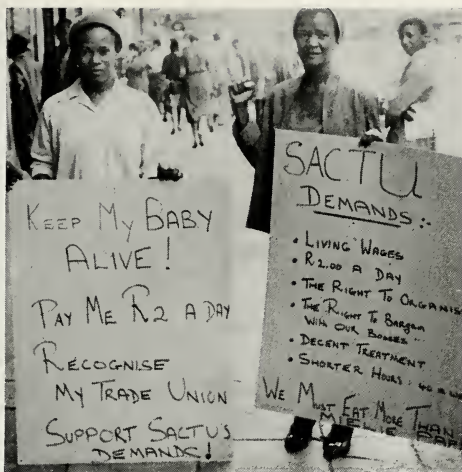 KEEP MY BABY
ALIVE!
PAY ME R2 A DAY
RECOGNISE
MY TRADE UNION
SUPPORT SACTU'S
DEMANDS!
SACTU
DEMANDS:-
• LIVING WAGES
• R2.00 A DAY
• THE RIGHT TO ORGANISE
• THE RIGHT TO BARGAIN
WITH OUR BOSSES
• DECENT TREATMENT
• SHORTER HOURS: 40 A
WE MUST EAT MORE THAN
MIELIE PAP